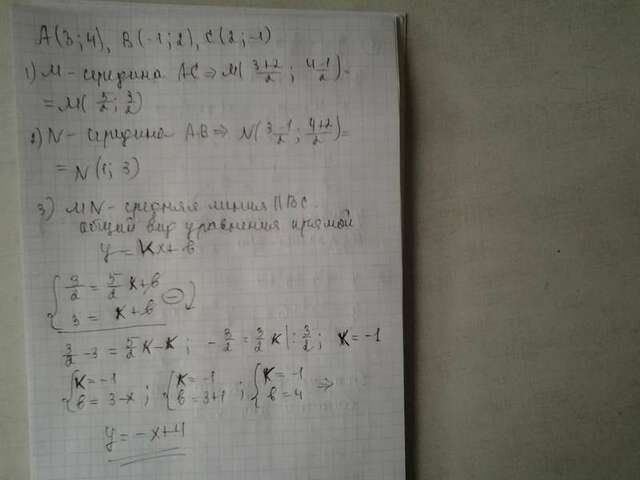 A(3;4), B(-1;2), C(2;-1)
1) M - середина AC ⇒ M( (3+2)/2 ; (4-1)/2 ) =
= M( 5/2 ; 3/2 )
2) N - середина AB ⇒ N( (3-1)/2 ; (4+2)/2 ) =
= N(1; 3)
3) MN - средняя линия ║ BC.
общий вид уравнения прямой
y = kx + b
{ 3/2 = 5/2 k + b
3 = k + b (−)
3/2 - 3 = 5/2 k - k ; - 3/2 = 3/2 k | : 3/2 ; k = -1
{ k = -1 ; { k = -1 ; { k = -1 ⇒
b = 3-k ; b = 3+1 ; b = 4
y = -x+4